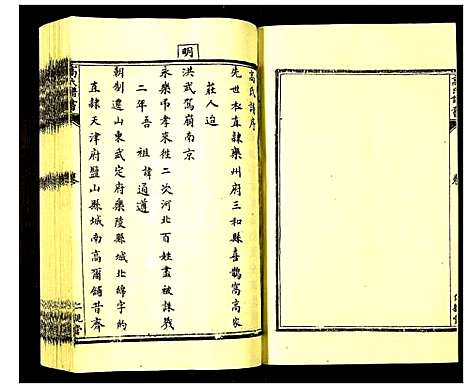 高氏譜序
先世本直隸欒州府三和縣喜鵲窩高家
莊人迨
明
洪武駕崩南京
永樂弔孝來往二次河北百姓盡被誅戮
二年吾祖諱通遵
朝制遷山東武定府樂陵縣城北綿字約
直隸天津府鹽山縣城南高爾鋪昔齊
高氏譜書
卷